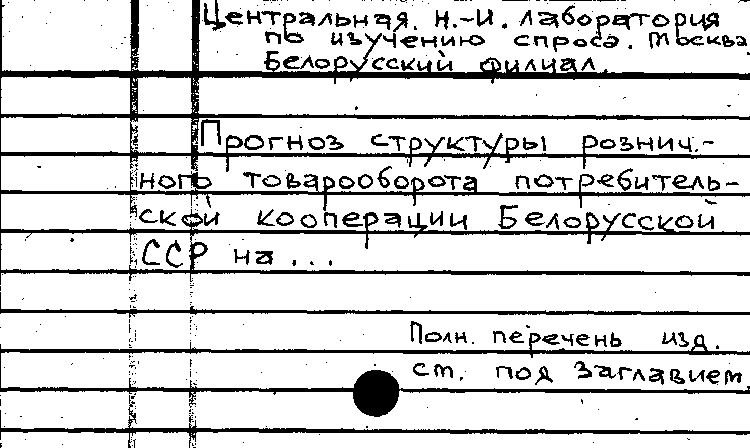 Центральная н.-и. лаборатория
по изучению спроса. Москва.
Белорусский филиал.
Прогноз структуры рознич.-
ного товарооборота потребитель-
ской кооперации Белорусской
ССР на ...
Полн. перечень изд.
см. под заглавием.